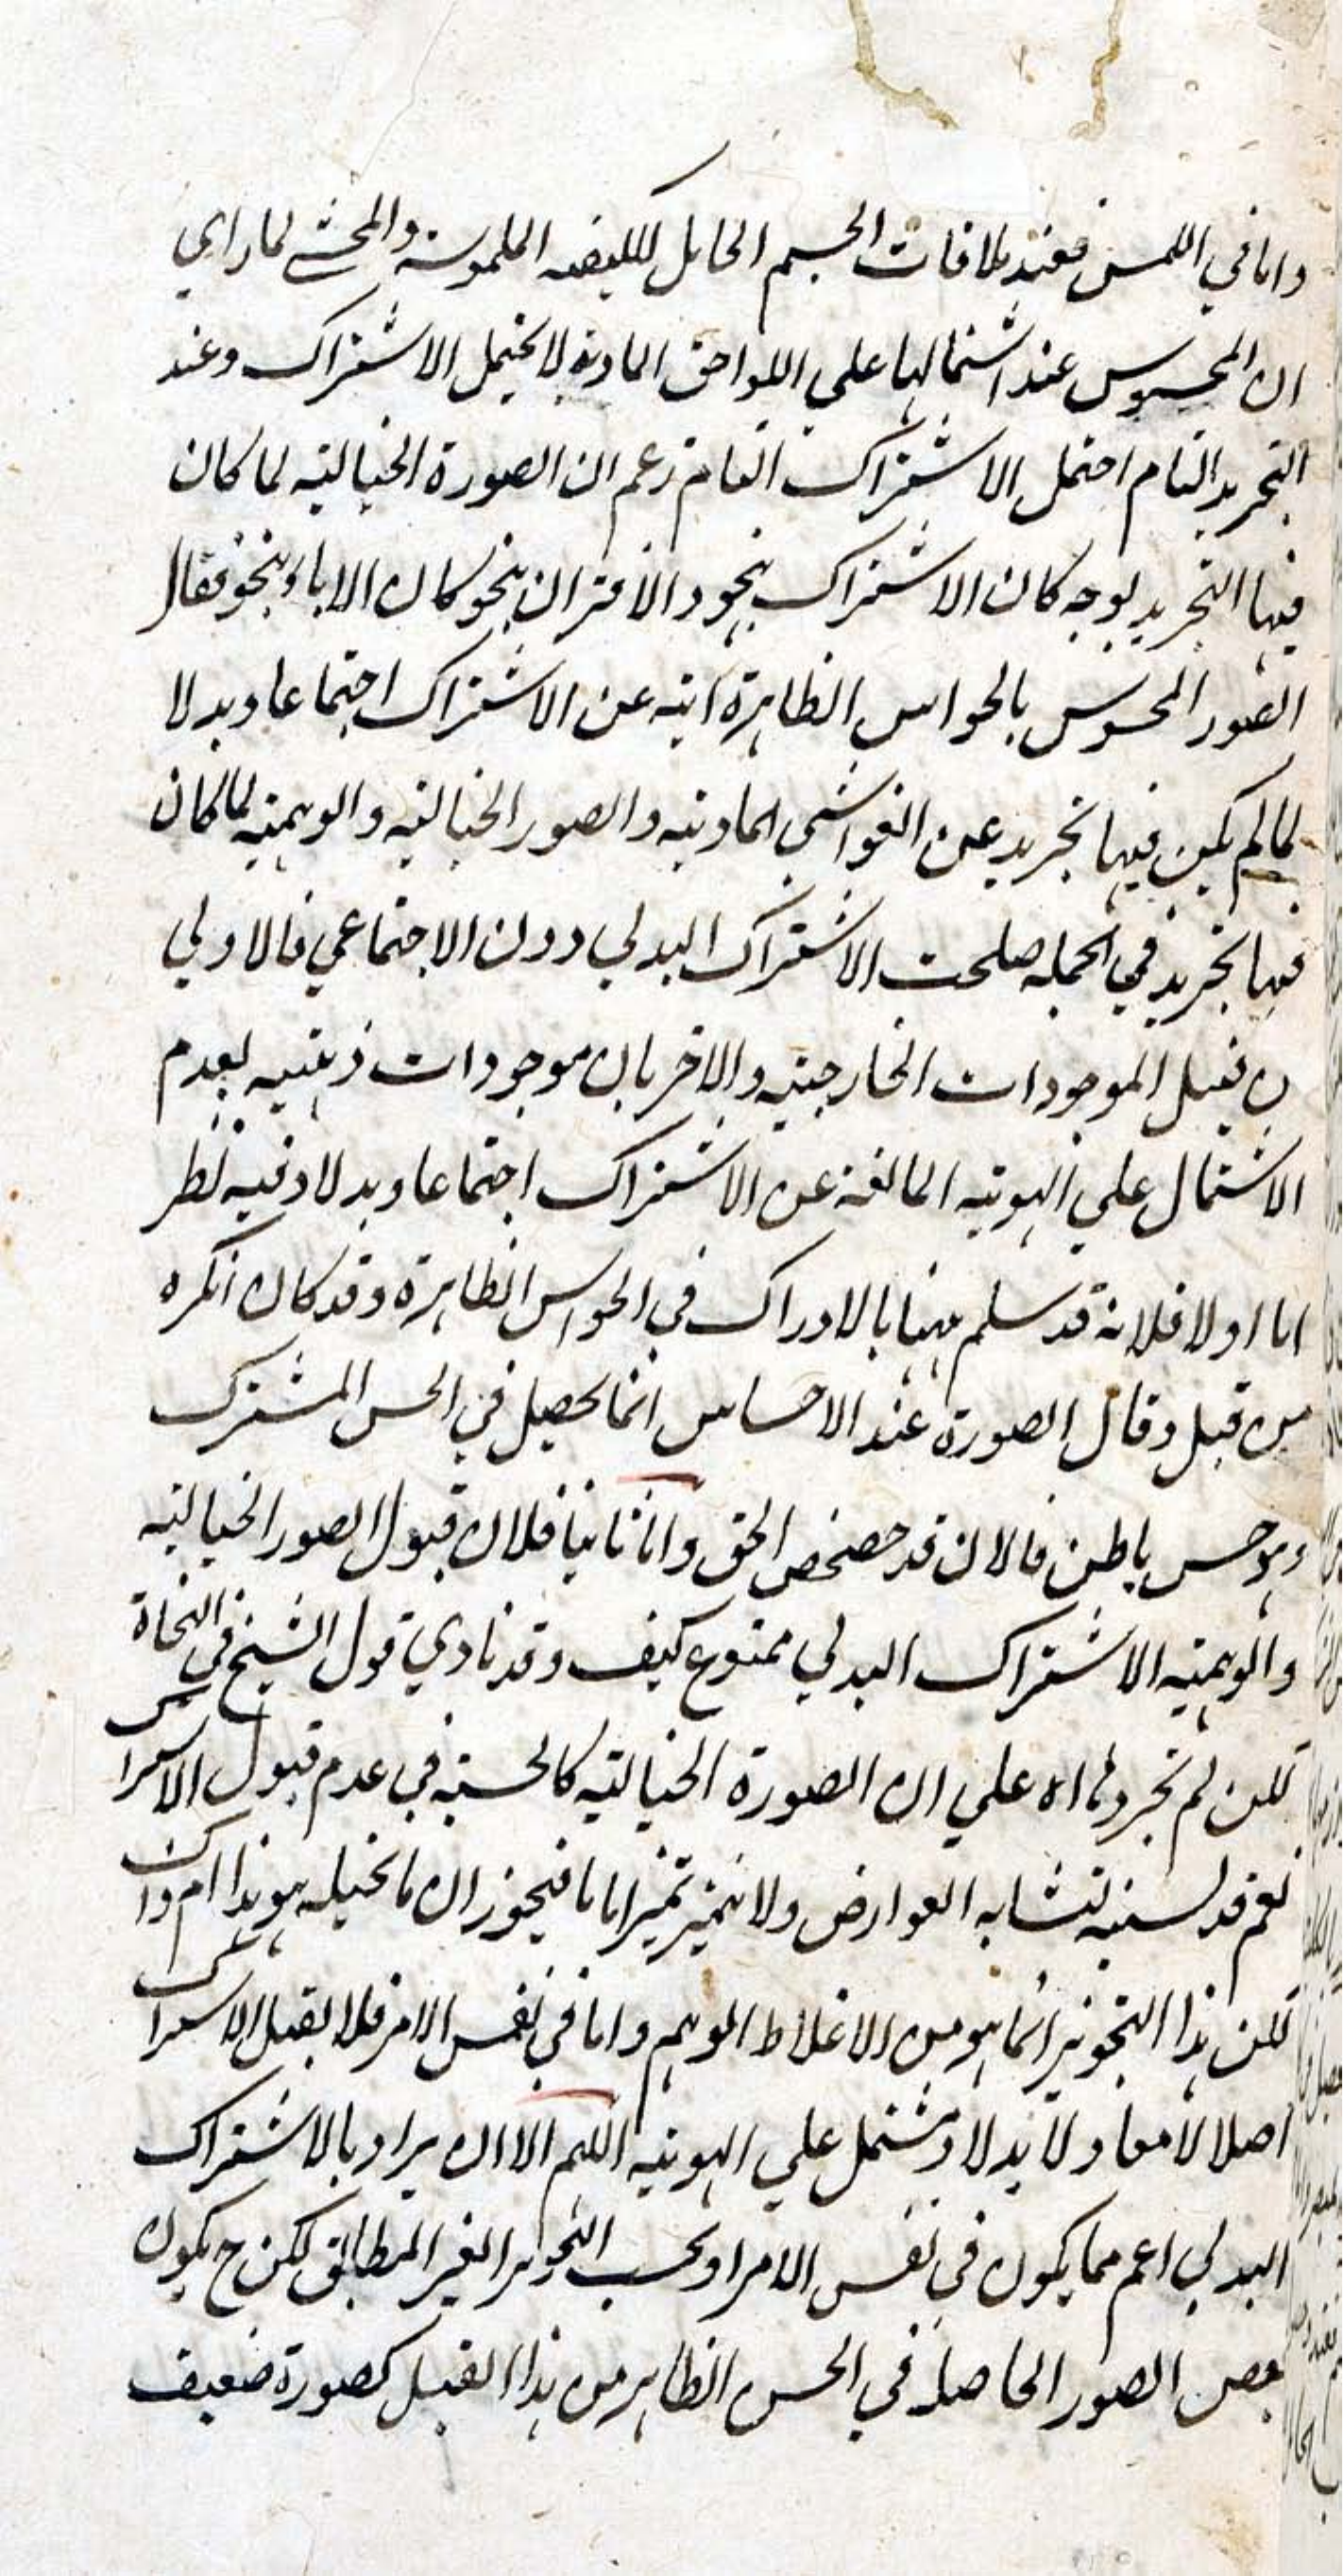 واما في اللمس فعند ملاقات الجسم الحامل للكيفيه الملموسة والمحشي لما راي
ان المحسوس عند اشتمالها علي اللواحق المادية لا يحتمل الاشتراك وعند
التجريد التام احتمل الاشتراك التام زعم ان الصورة الخياليه لما كان
فيها التجريد بوجه كان الاشتراك بنحو والاقتران بنحو كان الاباء بنحو فقال
الصور المحسوس بالحواس الظاهرة ابيه عن الاشتراك اجتماعا وبدلا
لما لم يكن فيها تجريد عن الغواشي الماديه والصور الخياليه والوهميه لما كان
فيها تجريد في الجمله صلحت الاشتراك البدلي دون الاجتماعي فالاولي
من قبيل الموجودات الخارجيه والاخريان موجودات ذهنيه لعدم
الاشتمال علي الهويه المانعة عن الاشتراك اجتماعا وبدلا وفيه نظر
اما اولا فلانه قد سلم ههنا بالادراك في الحواس الظاهرة وقد كان انكره
من قبل وقال الصورة عند الاحساس انما يحصل في الحس المشترك
وهو حس باطن فالان قد حصحص الحق واما ثانيا فلان قبول الصور الخياليه
والوهميه الاشتراك البدلي ممنوع كيف وقد نادي قول الشيخ في النجاة
لكن لم تجردها اه علي ان الصورة الخياليه كالحسيه في عدم قبول الاشتراك
نعم قد يشتبه لتشابه العوارض ولا تميز تميزا تاما فيجوز ان ما تخيله هو هذا ام ذاك
لكن هذا التجويز انما هو من الاغلاط الوهم واما في نفس الامر فلا يقبل الاشتراك
اصلا لا معا ولا بدلا ومشتمل علي الهويه اللهم الا ان يراد بالاشتراك
البدلي اعم مما يكون في نفس الامر او بحسب التجويز الغير المطابق لكن ح يكون
بعض الصور الحاصلة في الحس الظاهر من هذا القبيل كصورة ضعيف